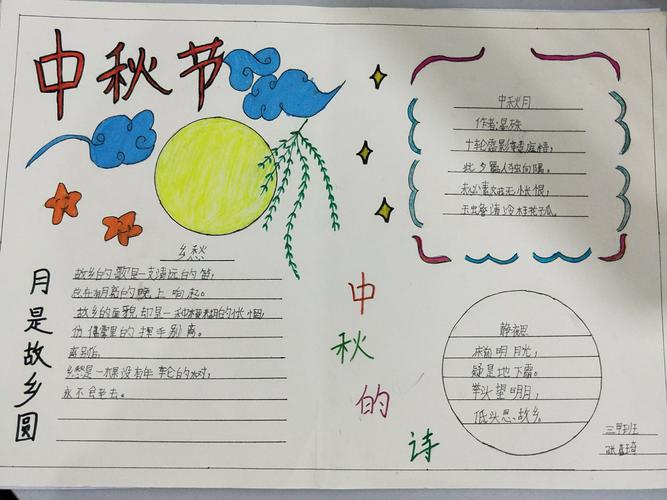 中秋节
乡愁
故乡的歌是一支清远的笛,
总在月亮的晚上响起。
故乡的面貌却是一种模糊的怅惘,
仿佛雾里的挥手别离。
离别后,
乡愁是一棵没有年轮的树,
永不老去。
月是故乡圆
中秋的诗
中秋月
作者:晏殊
十轮霜影转庭梧,
此夕羁人独向隅。
未必素娥无怅恨,
玉蟾清冷桂花孤。
静夜思
床前明月光,
疑是地上霜。
举头望明月,
低头思故乡。
三甲班
张